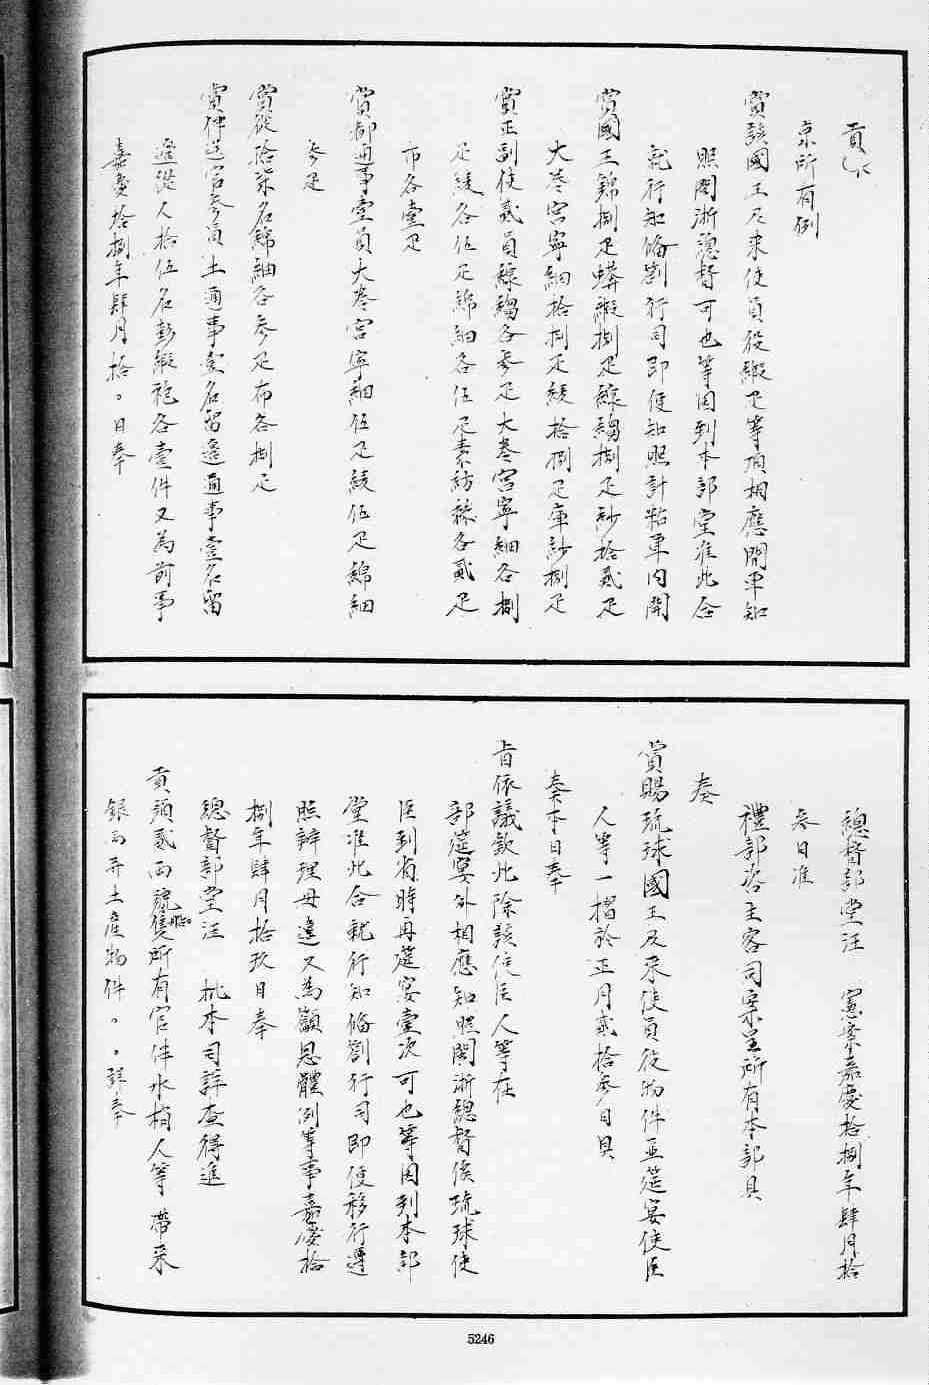 貢
京所有例
賞該國王及來使員役緞疋等項相應開單知
照閩浙總督可也等因到本部堂准此合
就行知俻劄行司即便知照計粘單內開
賞國王錦捌疋蟒緞捌疋線縐捌疋紗拾貳疋
大卷宮寧紬拾捌疋綾拾捌疋庫紗捌疋
賞正副使貳員線縐各叁疋大卷宮寧紬各捌
疋綾各伍疋綿紬各伍疋素紡絲各貳疋
布各壹疋
賞都通事壹員大卷宮寧紬伍疋綾伍疋綿紬
參疋
賞從拾柒名綿紬各參疋布各捌疋
賞伴送官參員土通事壹名留邊通事壹名留
邊從人拾伍名彭緞袍各壹件又為前事
嘉慶拾捌年肆月拾。日奉
總督部堂汪 憲案嘉慶拾捌年肆月拾
叁日准
禮部咨主客司案呈所有本部具
奏
賞賜琉球國王及來使員役物件並筵宴使臣
人等一摺於正月貳拾參日具
奏本日奉
旨依議欽此除該使臣人等在
部筵宴外相應知照閩浙總督俟琉球使
臣到省時再筵宴壹次可也等因到本部
堂准此合就行知俻劄行司即便移行遵
照辦理毋違又為籲恩體例等事嘉慶拾
捌年肆月拾玖日奉
總督部堂汪 批本司詳查得進
貢頭貳兩號船隻所有官伴水梢人等帶來
銀兩并土產物件。。詳奉
5246